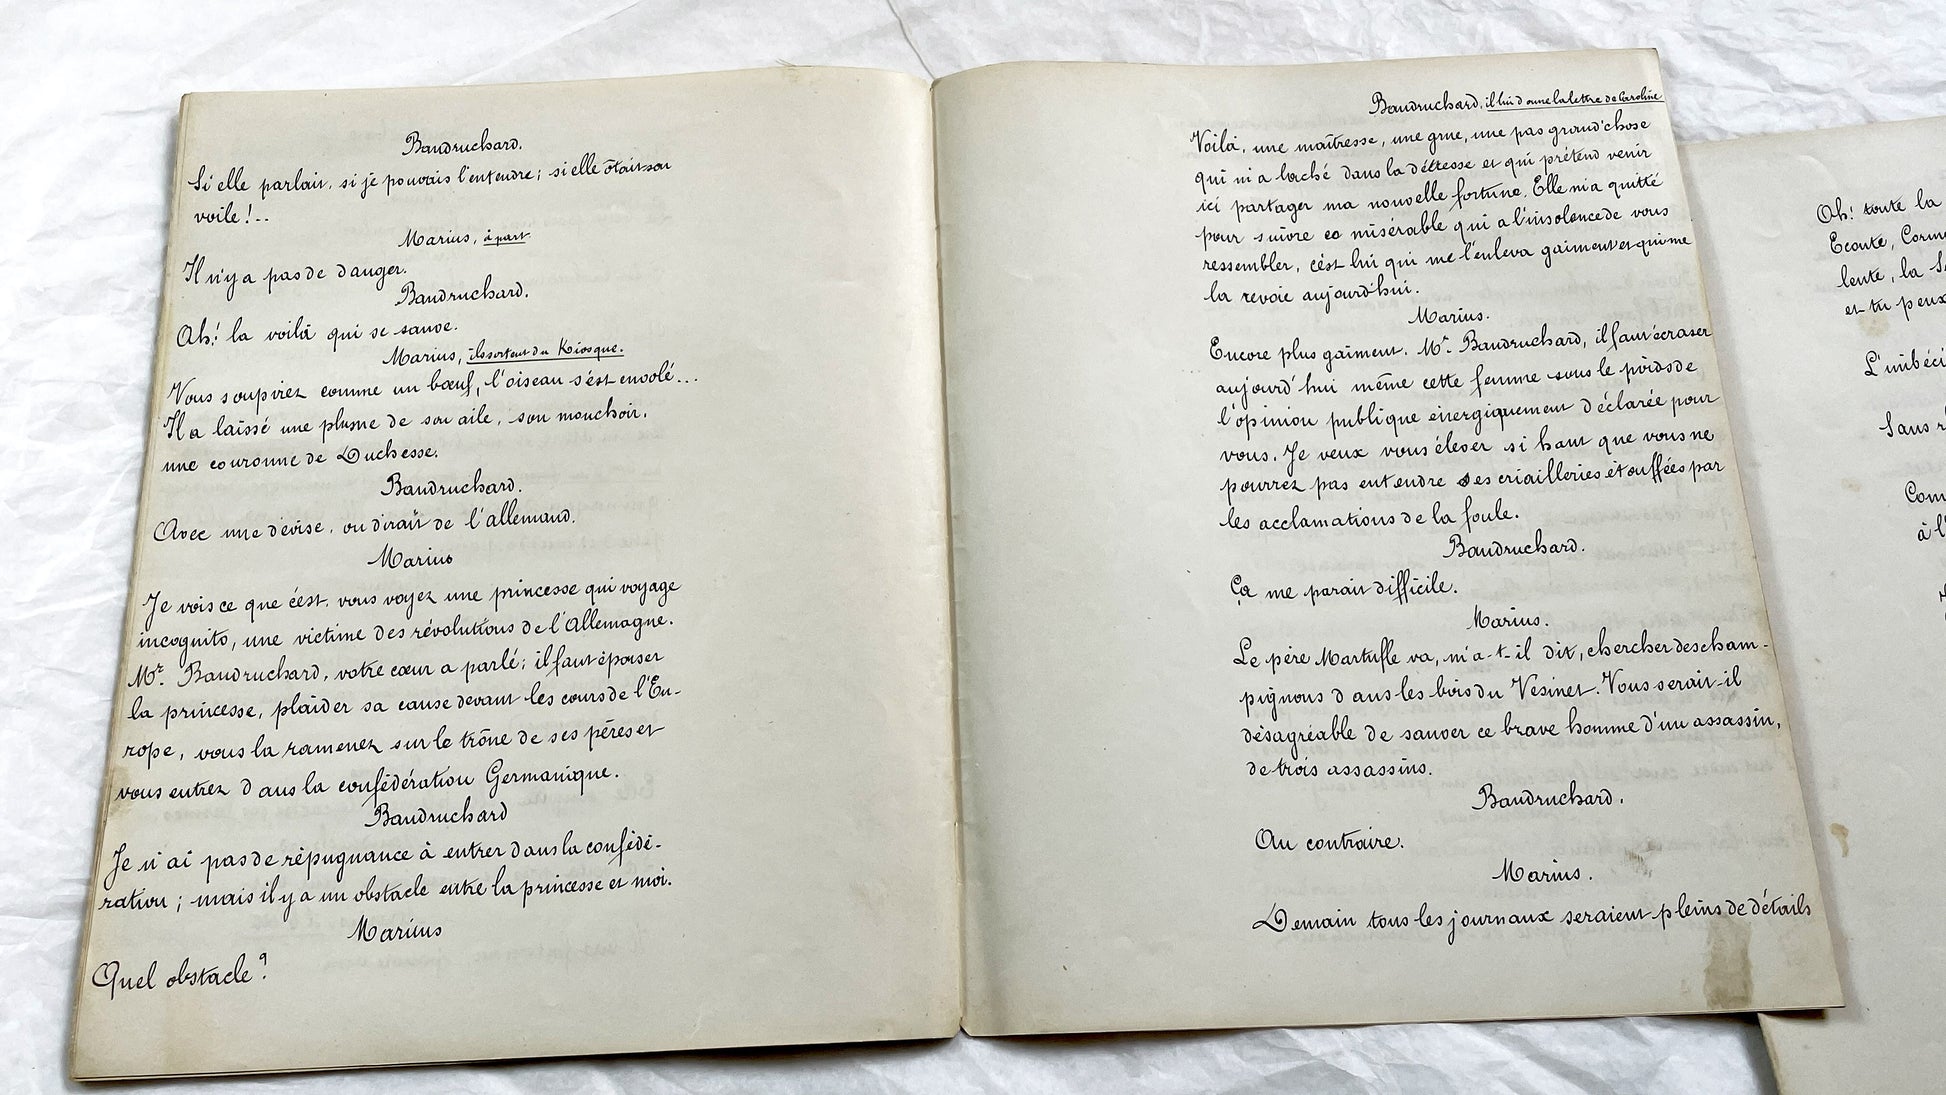 Baudruchard.
Si elle parlait, si je pouvais l'entendre; si elle ôtait son
voile!..
Marius, à part
Il n'y a pas de danger.
Baudruchard.
Ah! la voilà qui se sauve.
Marius, ils sortent du Kiosque.
Vous soupirez comme un bœuf, l'oiseau s'est envolé...
Il a laissé une plume de son aile, son mouchoir,
une couronne de Duchesse.
Baudruchard.
Avec une dévise, on dirait de l'allemand.
Marius
Je vois ce que c'est, vous voyez une princesse qui voyage
incognito, une victime des révolutions de l'Allemagne.
Mr. Baudruchard, votre cœur a parlé; il faut époiser
la princesse, plaider sa cause devant les cours de l'Eu-
rope, vous la ramenez sur le trône de ses pères et
vous entrez dans la confédération Germanique.
Baudruchard
Je n'ai pas de répugnance à entrer dans la confédé-
ration; mais il y a un obstacle entre la princesse et moi.
Marius
Quel obstacle?
Baudruchard, il lui donne la lettre de Caroline
Voilà, une maîtresse, une grue, une pas grand'chose
qui m'a laché dans la détresse et qui prétend venir
ici partager ma nouvelle fortune. Elle m'a quitté
pour suivre ce misérable qui a l'insolence de vous
ressembler, c'est lui qui me l'enleva gaiment et qui me
la revoie aujourd'hui.
Marius.
Encore plus gaiment. Mr. Baudruchard, il faut écraser
aujourd'hui même cette femme sous le poids de
l'opinion publique énergiquement déclarée pour
vous. Je veux vous élever si haut que vous ne
pourrez pas entendre ses criailleries étouffées par
les acclamations de la foule.
Baudruchard.
Ça me parait difficile.
Marius.
Le père Martuffle va, m'a-t-il dit, chercher des cham-
pignons dans les bois du Vesinet. Vous serait-il
désagréable de sauver ce brave homme d'un assassin,
de trois assassins.
Baudruchard.
Au contraire.
Marius.
Demain tous les journaux seraient pleins de détails
Oh! toute la
Ecoute,
lente, la
et tu peux
L'imbéci
Sans
Com
à l'